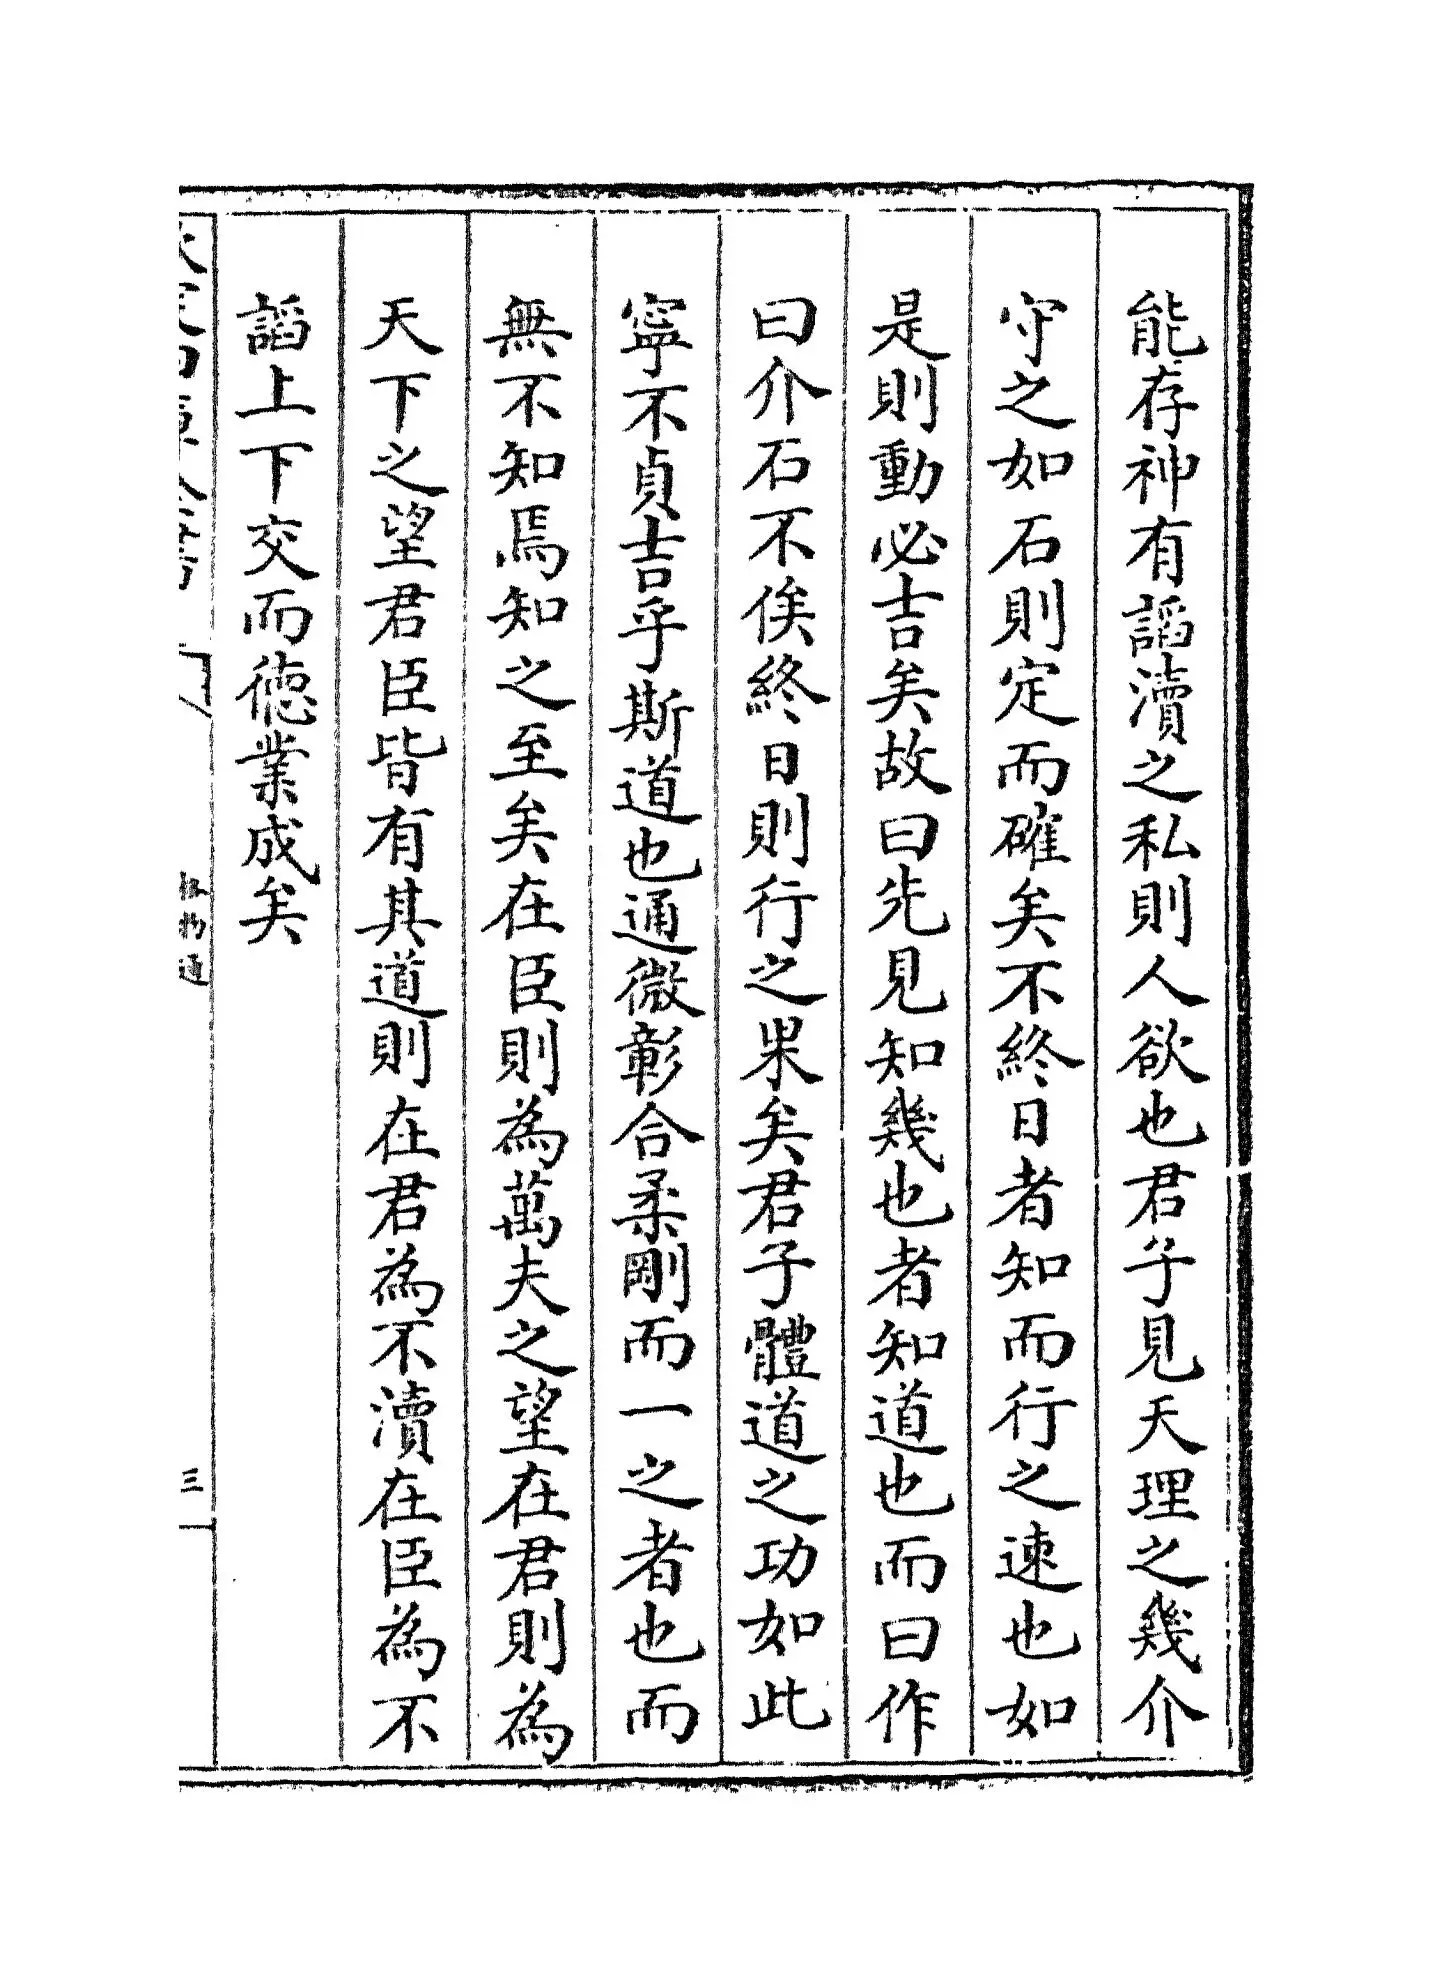 能存神有謟瀆之私則人欲也君子見天理之幾介
守之如石則定而確矣不終日者知而行之速也如
是則動必吉矣故曰先見知幾也者知道也而曰作
曰介石不俟終日則行之果矣君子體道之功如此
寧不貞吉乎斯道也通微彰合柔剛而一之者也而
無不知焉知之至矣在臣則為萬夫之望在君則為
天下之望君臣皆有其道則在君為不瀆在臣為不
謟上下交而德業成矣
格物通
三